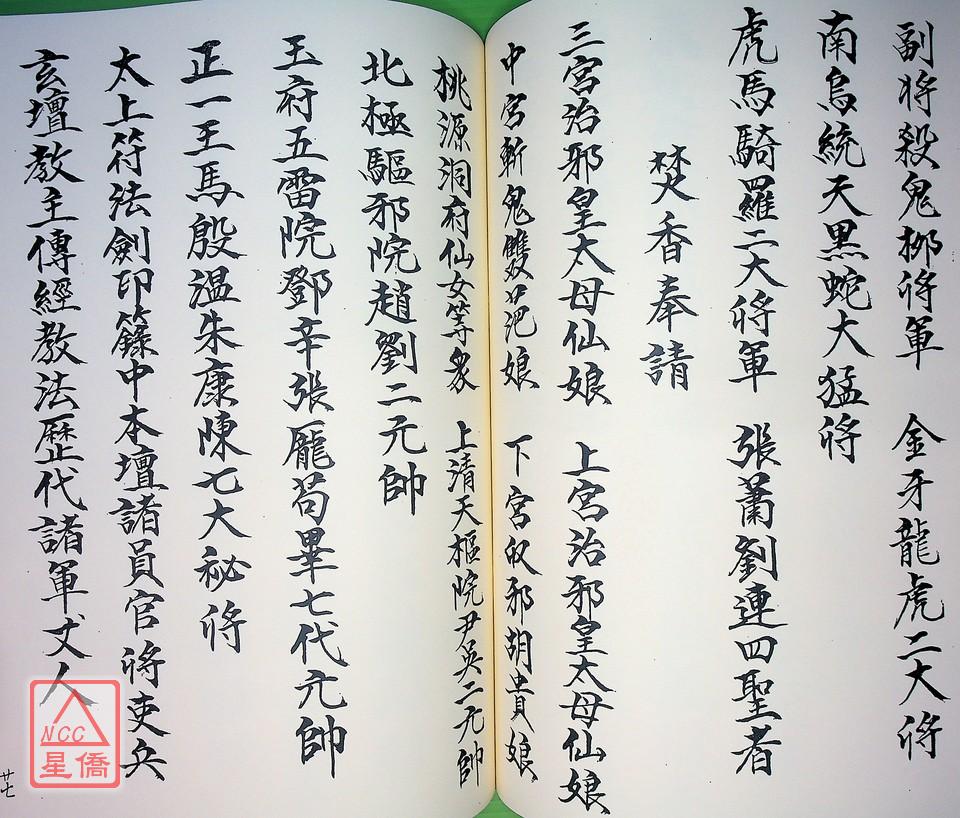 副將殺鬼挷將軍　金牙龍虎二大將
南烏統天黑蛇大猛將
虎馬騎羅二大將軍　張蕭劉連四聖者
焚香奉請
三宮治邪皇太母仙娘　上宮治邪皇太母仙娘
中宮斬鬼雙范娘　下宮収邪胡貴娘
桃源洞府仙女等衆　上清天樞院尹英二元帥
北極驅邪院趙劉二元帥
玉府五雷院鄧辛張龐苟畢七代元帥
正一王馬殷溫朱康陳七大秘將
太上符法劍印籙中本壇諸員官將吏兵
玄壇教主傳經教法歷代諸軍丈人
NCC
星僑
廿七